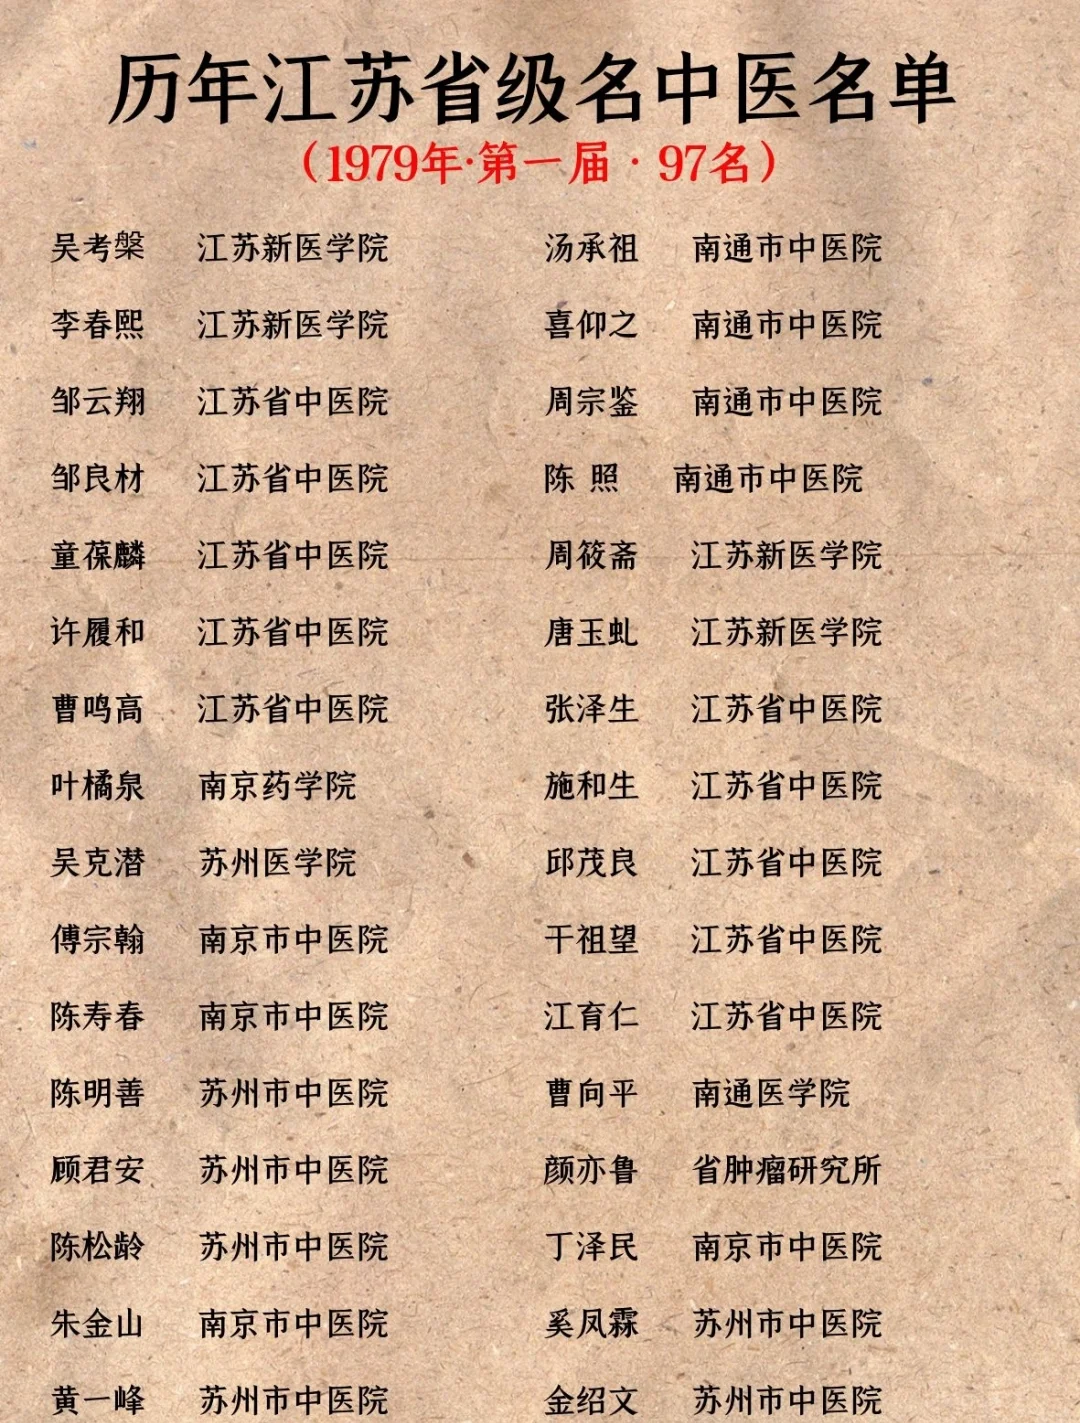 历年江苏省级名中医名单
(1979年·第一届·97名)
吴考槃 江苏新医学院 汤承祖 南通市中医院
李春熙 江苏新医学院 喜仰之 南通市中医院
邹云翔 江苏省中医院 周宗鉴 南通市中医院
邹良材 江苏省中医院 陈 照 南通市中医院
童葆麟 江苏省中医院 周筱斋 江苏新医学院
许履和 江苏省中医院 唐玉虬 江苏新医学院
曹鸣高 江苏省中医院 张泽生 江苏省中医院
叶橘泉 南京药学院 施和生 江苏省中医院
吴克潜 苏州医学院 邱茂良 江苏省中医院
傅宗翰 南京市中医院 干祖望 江苏省中医院
陈寿春 南京市中医院 江育仁 江苏省中医院
陈明善 苏州市中医院 曹向平 南通医学院
顾君安 苏州市中医院 颜亦鲁 省肿瘤研究所
陈松龄 苏州市中医院 丁泽民 南京市中医院
朱金山 南京市中医院 奚凤霖 苏州市中医院
黄一峰 苏州市中医院 金绍文 苏州市中医院